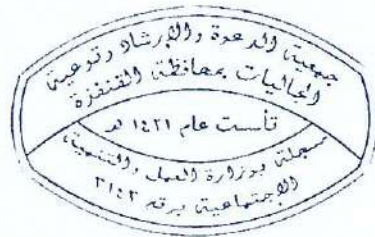 جمعية الدعوة والإرشاد وتوعية
الجاليات بمحافظة القنفذة
تأسست عام ١٤٢١ هـ
مسجلة بوزارة العمل والتنمية
الاجتماعية برقم ٣١٤٢